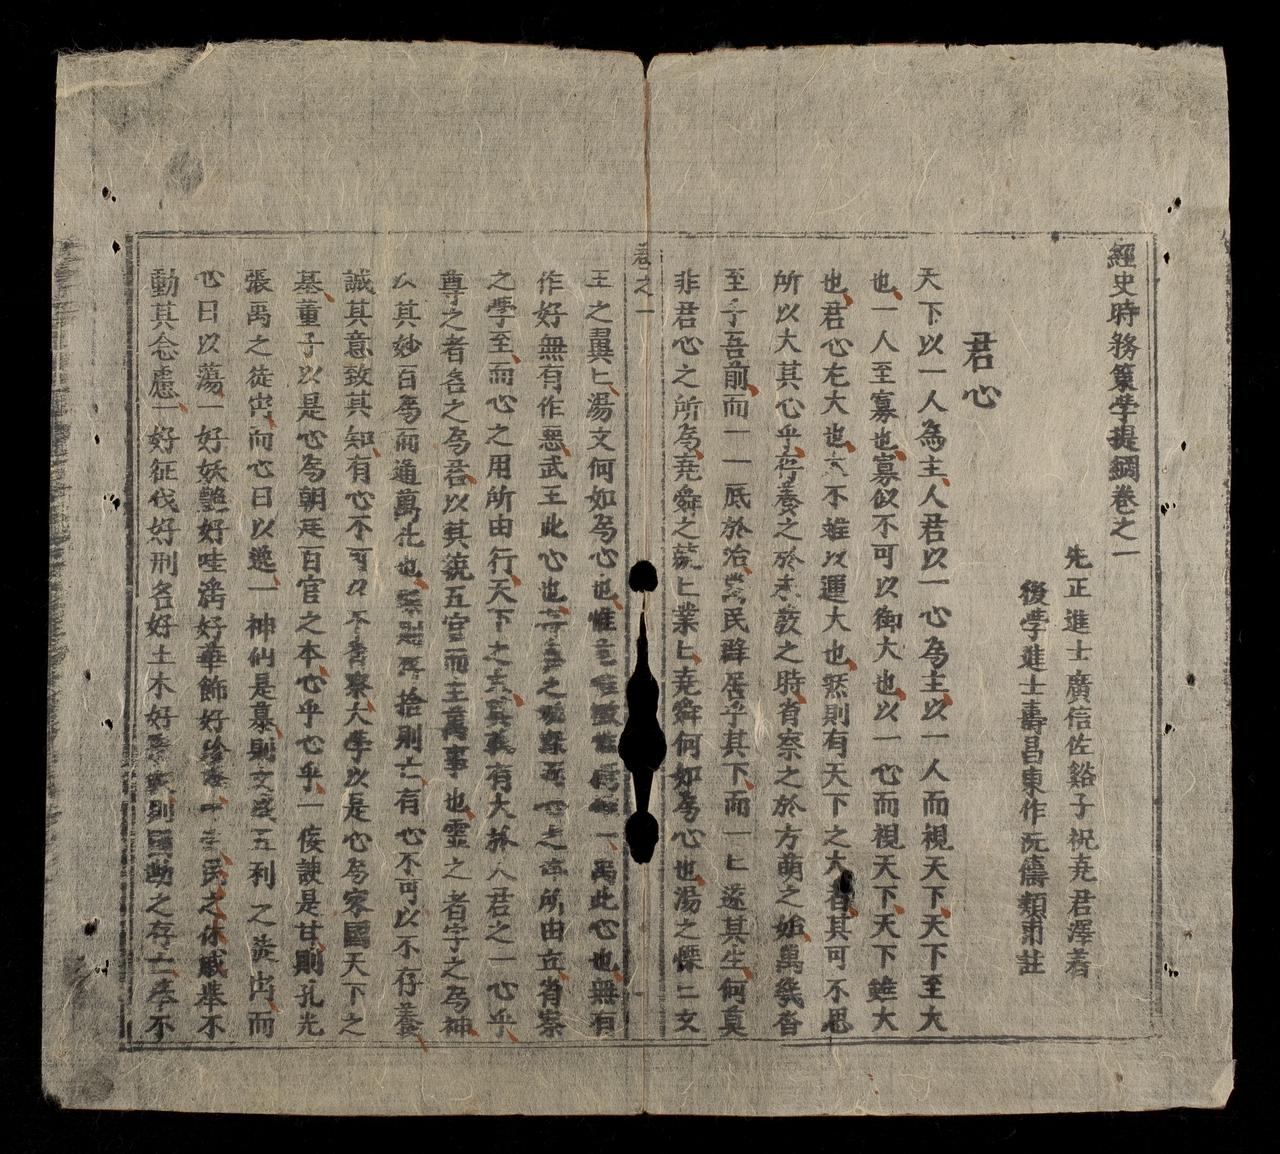 經史時務策學提綱卷之一
先正進士廣信佐谿子祝堯君澤着
後學進士壽昌東作沅儔類甫註
君心
天下以一人為主人君以一心為主以一人而視天下天下至大
也一人至寡也寡似不可以御大也以一心而視天下天下雖大
也君心尤大也大不難以運大也然則有天下之大者其可不思
所以大其心乎存養之於未發之時省察之於方萌之始萬幾沓
至于吾前而一一底於治萬民群居乎其下而一匕遂其生何莫
非君心之所為堯舜之兢匕業匕堯舜何如為心也湯之慄匕文
王之翼匕湯文何如為心也惟一禹此心也無有
作好無有作惡武王此心也之所由立省察
之學至而心之用所由行天下之大有大於人君之一心乎
尊之者名之為君以其統五官而主萬事也靈之者字之為神
以其妙百為而通萬化也捨則亡有心不可以不存養
誠其意致其知有心不可以不省察大學以是心為家國天下之
基董子以是心為朝廷百官之本心乎心乎一侫諛是甘則孔光
張禹之徒出而心日以逸一神仙是慕則文成五利之徒出而
心日以蕩一好妖艶好哇滛好華飾好珍生民之休戚舉不
動其念慮一好征伐好刑名好土木好則國勢之存亡舉不
卷之一